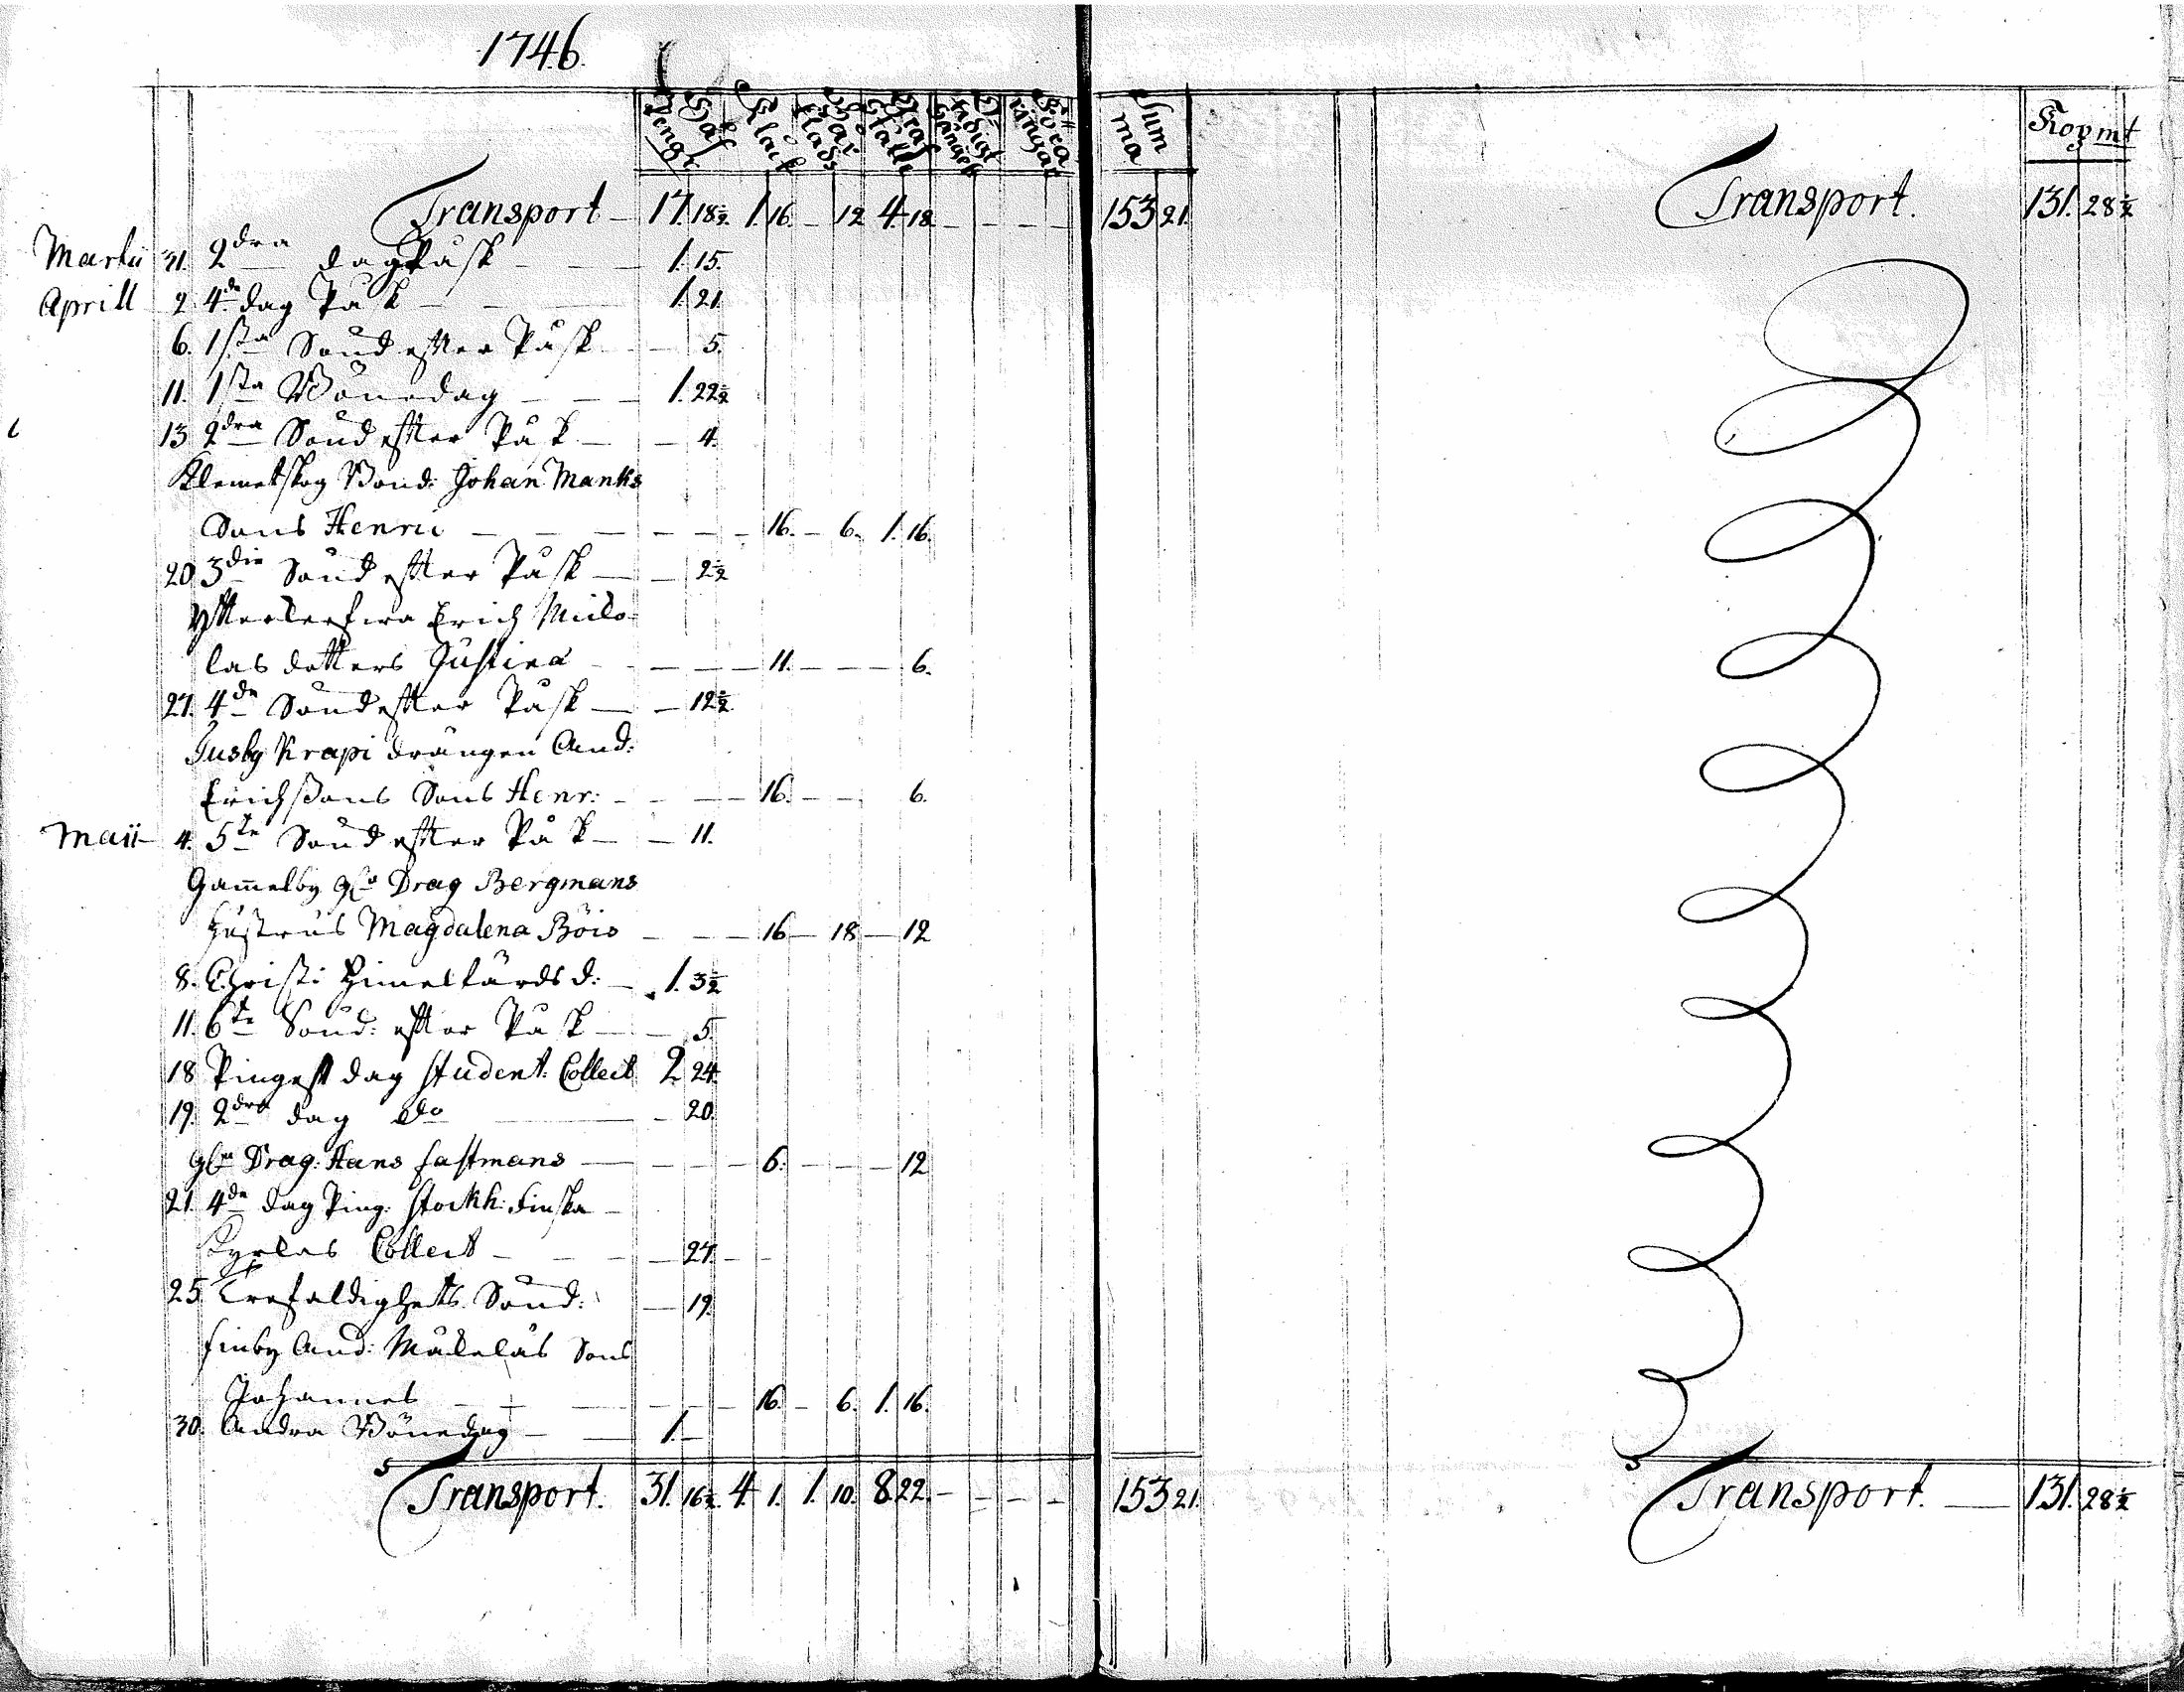 1746.
Penge Håf Klock Bår kläds Graf Ställe Summa Kopmt
Transport – 17. 18½ 1. 16. – 12 4. 18. – – – – 153 21.
Transport. 131. 28½
Martii 31. 2dra dag Påsk – – 1. 15.
Aprill 2. 4de dag Påsk – – 1. 21.
6. 1sta Sönd efter Påsk – – 5.
11. 1sta Bönedag – – – 1. 22½
13 2dra Sönd efter Påsk – – 4.
Klemetskog Bond: Johan Manks
Sons Henric – – – – – – 16. – 6. 1. 16.
20 3die Sönd efter Påsk – – 2½
Erich
las dotters Justina – – – – 11. – – – 6.
27. 4de Sönd efter Påsk – – 12½
Jusby Krapi drängen And:
Erichssons Sons Henr: – – – 16. – – 6.
Maii – 4. 5te Sönd efter Påsk – – 11.
Gammelby Drag Bergmans
hustrus Magdalena Böis – – – 16 – 18 – 12
8. Christi Himelfärds d: – 1. 3½
11. 6te Sönd: efter Påsk – – 5.
18 Pingest dag student: Collect 2 24.
19. 2dra dag do – 20.
Drag: Hans fastmans – – – – 6. – – – 12
21. 4de dag Ping: stockh: finska –
Kyrkas Collect – – – – 27. – –
25. Trefaldighets Sönd: – 19.
finby And: Mäkeläs Sons
Johannes – – – – – 16. – 6. 1. 16.
30. Andra Bönedag – – 1. –
Transport. 31. 16½. 4 1. 1. 10. 8 22. – – – – 153 21.
Transport. – 131. 28½